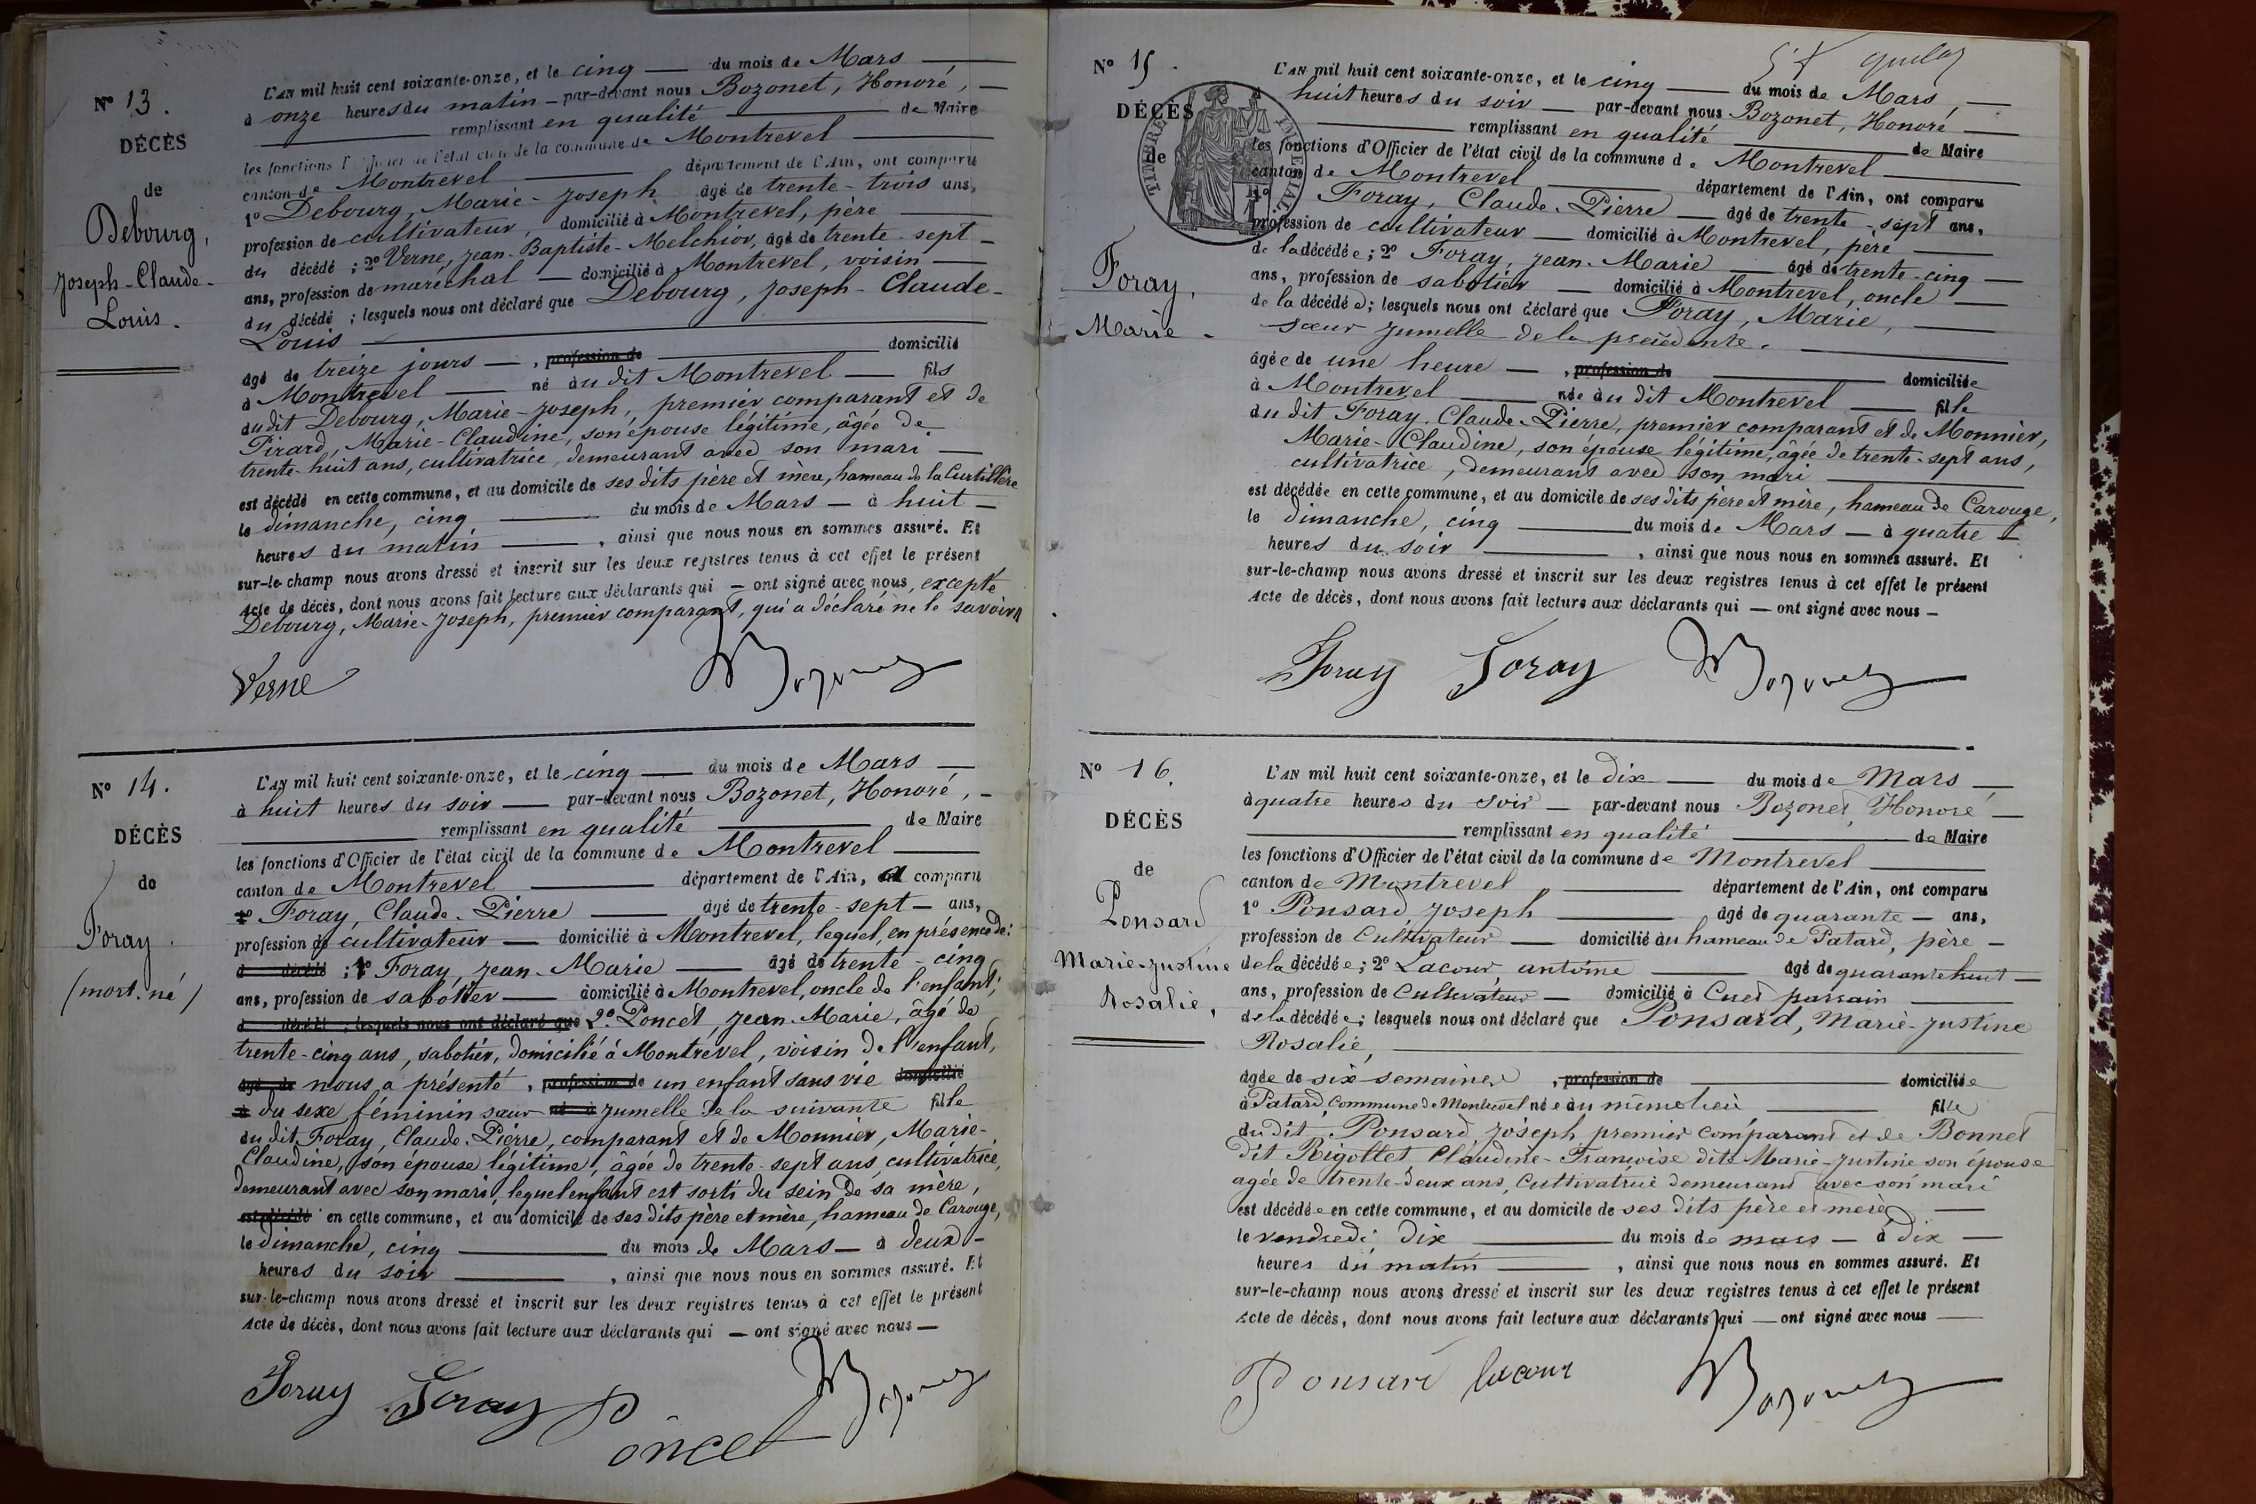 N° 13.
DÉCÈS
de
Debourg,
Joseph-Claude-
Louis.
L'AN mil huit cent soixante-onze, et le cinq du mois de Mars
à onze heures du matin par-devant nous Bozonet, Honoré,
remplissant en qualité de Maire
les fonctions d'Officier de l'état civil de la commune de Montrevel
canton de Montrevel département de l'Ain, ont comparu
1° Debourg, Marie-Joseph âgé de trente-trois ans,
profession de cultivateur, domicilié à Montrevel, père
du décédé ; 2° Verne, Jean-Baptiste-Melchior, âgé de trente-sept
ans, profession de maréchal domicilié à Montrevel, voisin
du décédé ; lesquels nous ont déclaré que Debourg, Joseph-Claude-
Louis
âgé de treize jours, profession de domicilié
à Montrevel né au dit Montrevel fils
du dit Debourg, Marie-Joseph, premier comparant et de
Pirard, Marie-Claudine, son épouse légitime, âgée de
trente-huit ans, cultivatrice, demeurant avec son mari
est décédé en cette commune, et au domicile de ses dits père et mère, hameau de la Curtillère
le dimanche, cinq du mois de Mars à huit
heures du matin, ainsi que nous nous en sommes assuré. Et
sur-le-champ nous avons dressé et inscrit sur les deux registres tenus à cet effet le présent
Acte de décès, dont nous avons fait lecture aux déclarants qui ont signé avec nous, excepté
Debourg, Marie-Joseph, premier comparant, qui a déclaré ne le savoir
Verne Bozonet
N° 14.
DÉCÈS
de
Foray.
(mort-né)
L'AN mil huit cent soixante-onze, et le cinq du mois de Mars
à huit heures du soir par-devant nous Bozonet, Honoré,
remplissant en qualité de Maire
les fonctions d'Officier de l'état civil de la commune de Montrevel
canton de Montrevel département de l'Ain, a comparu
1° Foray, Claude-Pierre âgé de trente-sept ans,
profession de cultivateur domicilié à Montrevel, lequel, en présence de:
d décédé ; 1° Foray, Jean-Marie âgé de trente-cinq
ans, profession de sabotier domicilié à Montrevel, oncle de l'enfant;
d décédé ; lesquels nous ont déclaré que 2° Poncet Jean-Marie, âgé de
trente-cinq ans, sabotier, domicilié à Montrevel, voisin de l'enfant,
âgé de nous a présenté, profession de un enfant sans vie domicilié
à du sexe féminin sœur né à jumelle de la suivante fille
du dit Foray, Claude-Pierre, comparant et de Monnier, Marie-
Claudine, son épouse légitime, âgée de trente-sept ans, cultivatrice,
demeurant avec son mari, lequel enfant est sorti du sein de sa mère,
est décédé en cette commune, et au domicile de ses dits père et mère, hameau de Carouge,
le dimanche, cinq du mois de Mars à deux
heures du soir, ainsi que nous nous en sommes assuré. Et
sur-le-champ nous avons dressé et inscrit sur les deux registres tenus à cet effet le présent
Acte de décès, dont nous avons fait lecture aux déclarants qui ont signé avec nous
Foray Foray Poncet Bozonet
N° 15.
DÉCÈS
de
Foray,
Marie.
TIMBRE IMPÉRIAL
L'AN mil huit cent soixante-onze, et le cinq du mois de Mars,
à huit heures du soir par-devant nous Bozonet, Honoré
remplissant en qualité de Maire
les fonctions d'Officier de l'état civil de la commune de Montrevel
canton de Montrevel département de l'Ain, ont comparu
1° Foray, Claude-Pierre âgé de trente-sept ans,
profession de cultivateur domicilié à Montrevel, père
de la décédée ; 2° Foray, Jean-Marie âgé de trente-cinq
ans, profession de sabotier domicilié à Montrevel, oncle
de la décédée ; lesquels nous ont déclaré que Foray, Marie,
sœur jumelle de la précédente.
âgée de une heure, profession de domiciliée
à Montrevel née au dit Montrevel fille
du dit Foray, Claude-Pierre, premier comparant et de Monnier,
Marie-Claudine, son épouse légitime, âgée de trente-sept ans,
cultivatrice, demeurant avec son mari
est décédée en cette commune, et au domicile de ses dits père et mère, hameau de Carouge,
le dimanche, cinq du mois de Mars à quatre
heures du soir, ainsi que nous nous en sommes assuré. Et
sur-le-champ nous avons dressé et inscrit sur les deux registres tenus à cet effet le présent
Acte de décès, dont nous avons fait lecture aux déclarants qui ont signé avec nous
Foray Foray Bozonet
N° 16.
DÉCÈS
de
Ponsard
Marie-Justine
Rosalie,
L'AN mil huit cent soixante-onze, et le dix du mois de Mars
à quatre heures du soir par-devant nous Bozonet, Honoré
remplissant en qualité de Maire
les fonctions d'Officier de l'état civil de la commune de Montrevel
canton de Montrevel département de l'Ain, ont comparu
1° Ponsard, Joseph âgé de quarante ans,
profession de Cultivateur domicilié au hameau de Patard, père
de la décédée ; 2° Lacour antoine âgé de quarante huit
ans, profession de Cultivateur domicilié à Cuet parrain
de la décédée ; lesquels nous ont déclaré que Ponsard, Marie-Justine
Rosalie,
âgée de six semaines, profession de domiciliée
à Patard, Commune de Montrevel née au même lieu fille
du dit Ponsard Joseph premier comparant et de Bonnet
dit Rigollet Claudine-Françoise dite Marie-Justine son épouse
agée de trente-deux ans, Cultivatrice demeurant avec son mari
est décédée en cette commune, et au domicile de ses dits père et mère
le vendredi dix du mois de mars à dix
heures du matin, ainsi que nous nous en sommes assuré. Et
sur-le-champ nous avons dressé et inscrit sur les deux registres tenus à cet effet le présent
Acte de décès, dont nous avons fait lecture aux déclarants qui ont signé avec nous
Ponsard lacour Bozonet